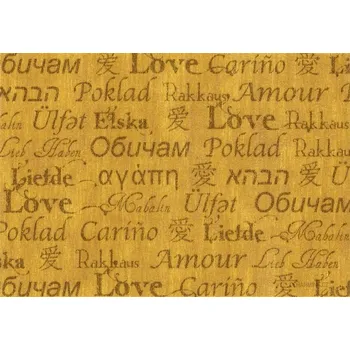 Обичам 愛 Love Cariño 愛
אהבה Poklad Rakkaus Amour
Mabalin Ülfət Elska 愛 Love Rakkaus
Lieb Haben Обичам Poklad
Liefde αγάπη 愛 אהבה Cariño
Love Mabalin Ülfət Обичам
Poklad Cariño 愛 Liefde Mabalin
Elska 愛 Rakkaus Amour Lieb Haben
Love Cariño 愛